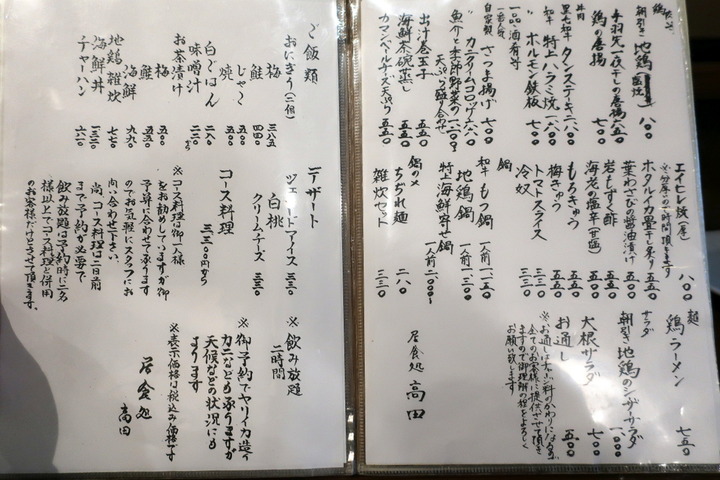 朝引き 地鶏 塩 八〇〇
手羽先一夜干しの唐揚 六五〇
鶏の唐揚 七〇〇
牛肉
黒毛和牛 タンステーキ 二八〇〇
和牛 特上ハラミ焼 一六〇〇
〃 ホルモン鉄板 七〇〇
一品・酒肴
自家製 さつま揚げ 七〇〇
〃 カニクリームコロッケ 六六〇
魚介と季節野菜の天ぷら盛り合わせ 一二〇〇
出汁巻玉子 六六〇
海鮮茶碗蒸し 五五〇
カマンベールチーズ天ぷら 五五〇
エイヒレ炙(唐)
※炙は少々お時間頂きます 八〇〇
ホタルイカ畳干し炙り 五五〇
葉わさびの醤油漬け 五五〇
岩もずく酢 五五〇
海老の塩辛(甘塩) 五五〇
もろきゅう
梅きゅう
トマトスライス 三三〇
冷奴 三三〇
鍋
和牛 もつ鍋 一人前 一二五〇
地鶏鍋 一人前 一三〇〇
特上海鮮寄せ鍋 一人前 二〇〇〇〜
鍋のメ
ちぢれ麺 二八〇
雑炊セット 三三〇
麺
鶏ラーメン 七五〇
サラダ
朝引き 地鶏のシーザーサラダ 一〇〇〇
大根サラダ 七〇〇
お通し 五〇〇
※お通しはチャージ料のかわりになります
全てのお客様に提供させて頂き
ますので御理解の程よろしく
お願い致します
居食処 高田
ご飯類
おにぎり(二個)
梅 三八五
鮭 四四〇
じゃこ 五〇〇
焼 五〇〇
白ごはん 二二〇
味噌汁 二六〇から
お茶漬け
梅 五五〇
鮭 五五〇
海鮮 九九〇
地鶏雑炊 七七〇
海鮮丼 一三二〇
チャーハン 六八〇
デザート
ツェードアイス 三三〇
白桃
クリームチーズ 三三〇
コース料理
三三〇〇円から
※コース料理は御一人様
をお勧めしていますが御
予算に合わせて承ります
のでお気軽にスタッフにお
問い合わせ下さい。
尚、コース料理は二日前
まで予約が必要で
飲み放題は予約時に二名
様以上でコース料理と併用
のお客様だけとさせて頂きます。
※飲み放題
二時間
※御予約でヤリイカ造り
カニなども承りますが
天候などの状況にも
よります
※表示価格は税込み価格です
居食処
高田